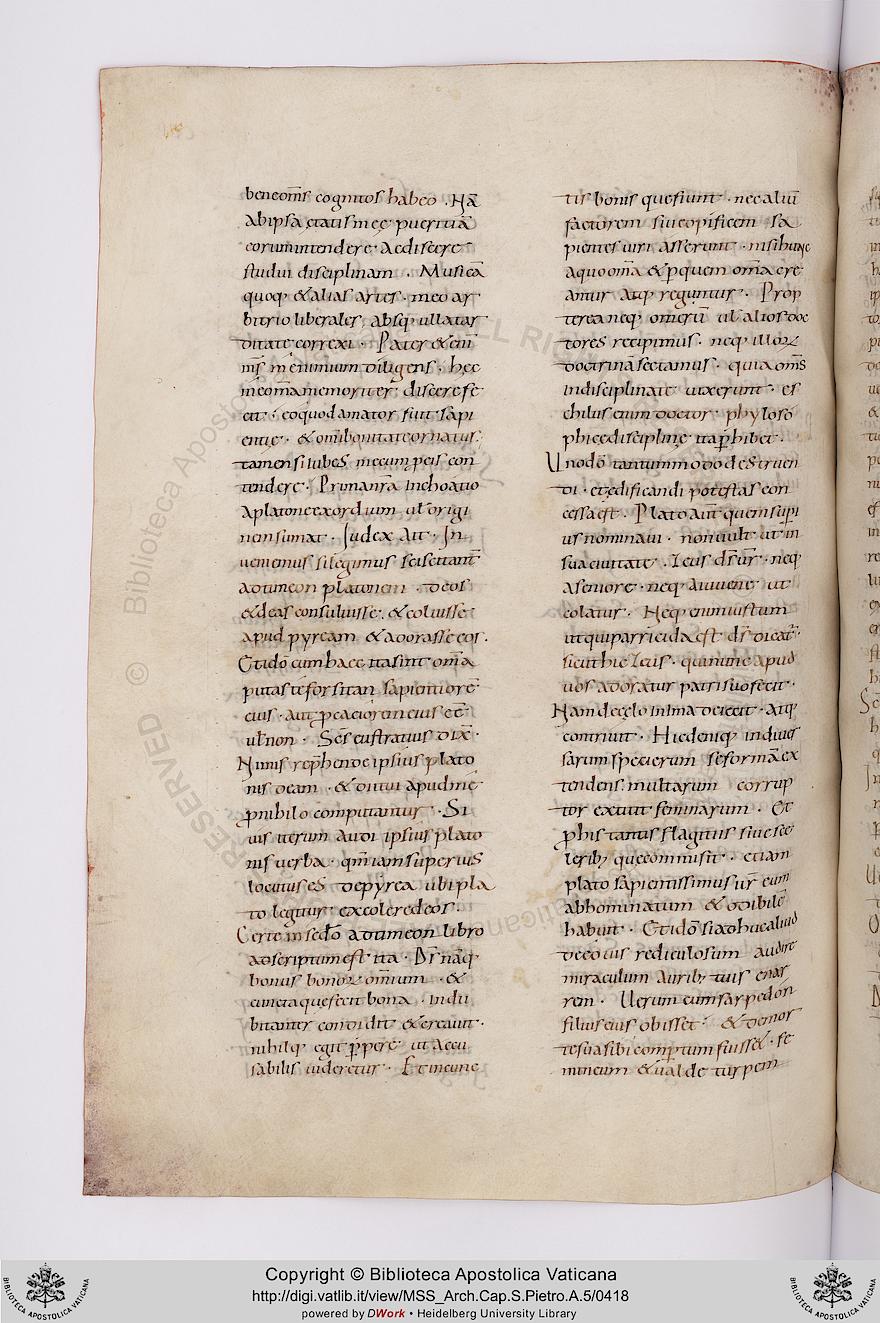 bene om̄s cognitos habeo . Nā
ab ipsa ętatis meę pueritiā
eorum intendere · ac discere
studui disciplinam . Musicā
quoq; & alias artes · meo ar
bitrio liberales, absq; ulla tar
ditate correxi · Pater & eni
m̄s me nimium diligens · hec
me om̄a memoriter discere fe
cit · eo quod amator fuit sapi
entię · & om̄i bonitate ornatus.
tamen si iubes mecum p̱ eis con
tendere · Prima nr̄a inchoatio
a platone exordium ul̄ origi
nem sumat · Iudex Ait · In
uenimus si legimus sciscitant̄
ad timeon platonem · deos
& deas consuluisse · & coluisse
apud pyream & adorasse eos .
Et idō cum haec ita sint om̄a
putas te forsitan sapientiorē
eius · aut p̱cacioren eius eē
ul̄ non · Sc̄s eustratius dix̄ ·
Nimis rep̱hende ipsius plato
nis deam · & diuui apud me
p̱ nihilo computantur · Si
uis iterum audi ipsius plato
nis uerba · qm̄ iam superius
locutus es de pyrea ubi pla
to legitur excolere deos .
Certe in sedō ad timeon libro
adscriptum est ita · Ds̄ naq;
bonus bonoꝝ om̄ium · &
cuncta que fecit bona · indu
bitanter condidit & creauit ·
nihilq; egit p̱pere ut accu
sabilis uideretur · Et incunc
tis bonis quesiunt · nec aliū
factorem siue opificem sa
pientes uiri asserunt · nisi hunc
a quo om̄a & p̱ quem om̄a cre
antur atq; reguntur · Prop
terea neq; omerū ul̄ alios doc
tores recipimus · neq; illoꝝ
doctrinā sectamus · quia om̄s
indisciplinate uixerunt · es
chilus cum doctor phyloso
phice disciplinę ita p̱hibet ·
Unodō tantummodo destruen
di · et ędificandi potestas con
cessa est . Plato aut̄ quem supi
us nominaui · non uult ut in
sua ciuitate · Ieus ds̄ ur̄ · neq;
a seniore · neq; a iuuene ut
colatur · Neq; enim iustum
ut qui parricida est ds̄ dicat̄ ·
sicut hic Ieus · qui nunc apud
uos adoratur patri suo fecit ·
Nam de cęlo in ima deiecit · atq;
contriuit · Hic deniq; in diuer
sarum specierum se formā ex
tendens multarum corrup
tor extitit feminarum · Et
p̱ his tantis flagitiis siue sce
lerib; que commisit · etiam
plato sapientissimus ur̄ eum
abhominatum & odibilē
habuit · Et idō si adhuc aliud
de eo uis rediculosum audire
miraculum aurib; tuis enar
rem · Uerum cum sarpedon
filius eius obisset · & demor
te sua sibi comp̱tum fuisset · fe
mineum & ualde turpem
Copyright © Biblioteca Apostolica Vaticana
http://digi.vatlib.it/view/MSS_Arch.Cap.S.Pietro.A.5/0418
powered by DWork • Heidelberg University Library